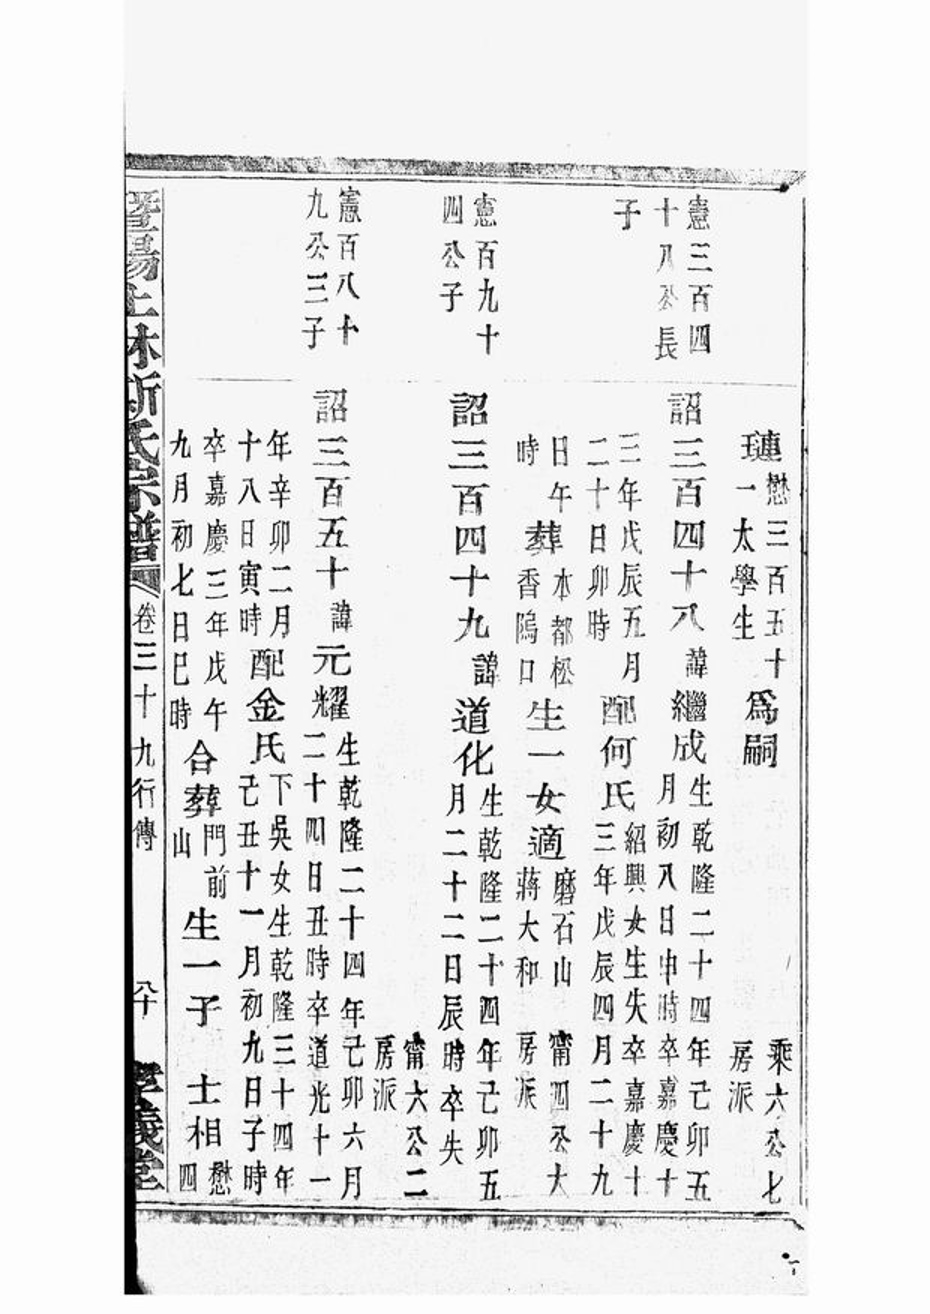 憲三百四
十八公長
子
憲百九十
四公子
憲百八十
九公三子
璉懋三百五十一太學生為嗣 乘六公七房派
詔三百四十八諱繼成生乾隆二十四年己卯五月初八日申時卒嘉慶十
三年戊辰五月二十日卯時配何氏紹興女生失卒嘉慶十三年戊辰四月二十九
日午時葬本都松香隖口生一女適磨石山蔣大和 甯四公大房派
詔三百四十九諱道化生乾隆二十四年己卯五月二十二日辰時卒失
甯六公二房派
詔三百五十諱元耀生乾隆二十四年己卯六月二十四日丑時卒道光十一
年辛卯二月十八日寅時配金氏下吳女生乾隆三十四年己丑十一月初九日子時
卒嘉慶三年戊午九月初七日巳時合葬門前山生一子 士相懋四
暨陽上林斯氏宗譜 卷三十九行傳 八十 孝義堂